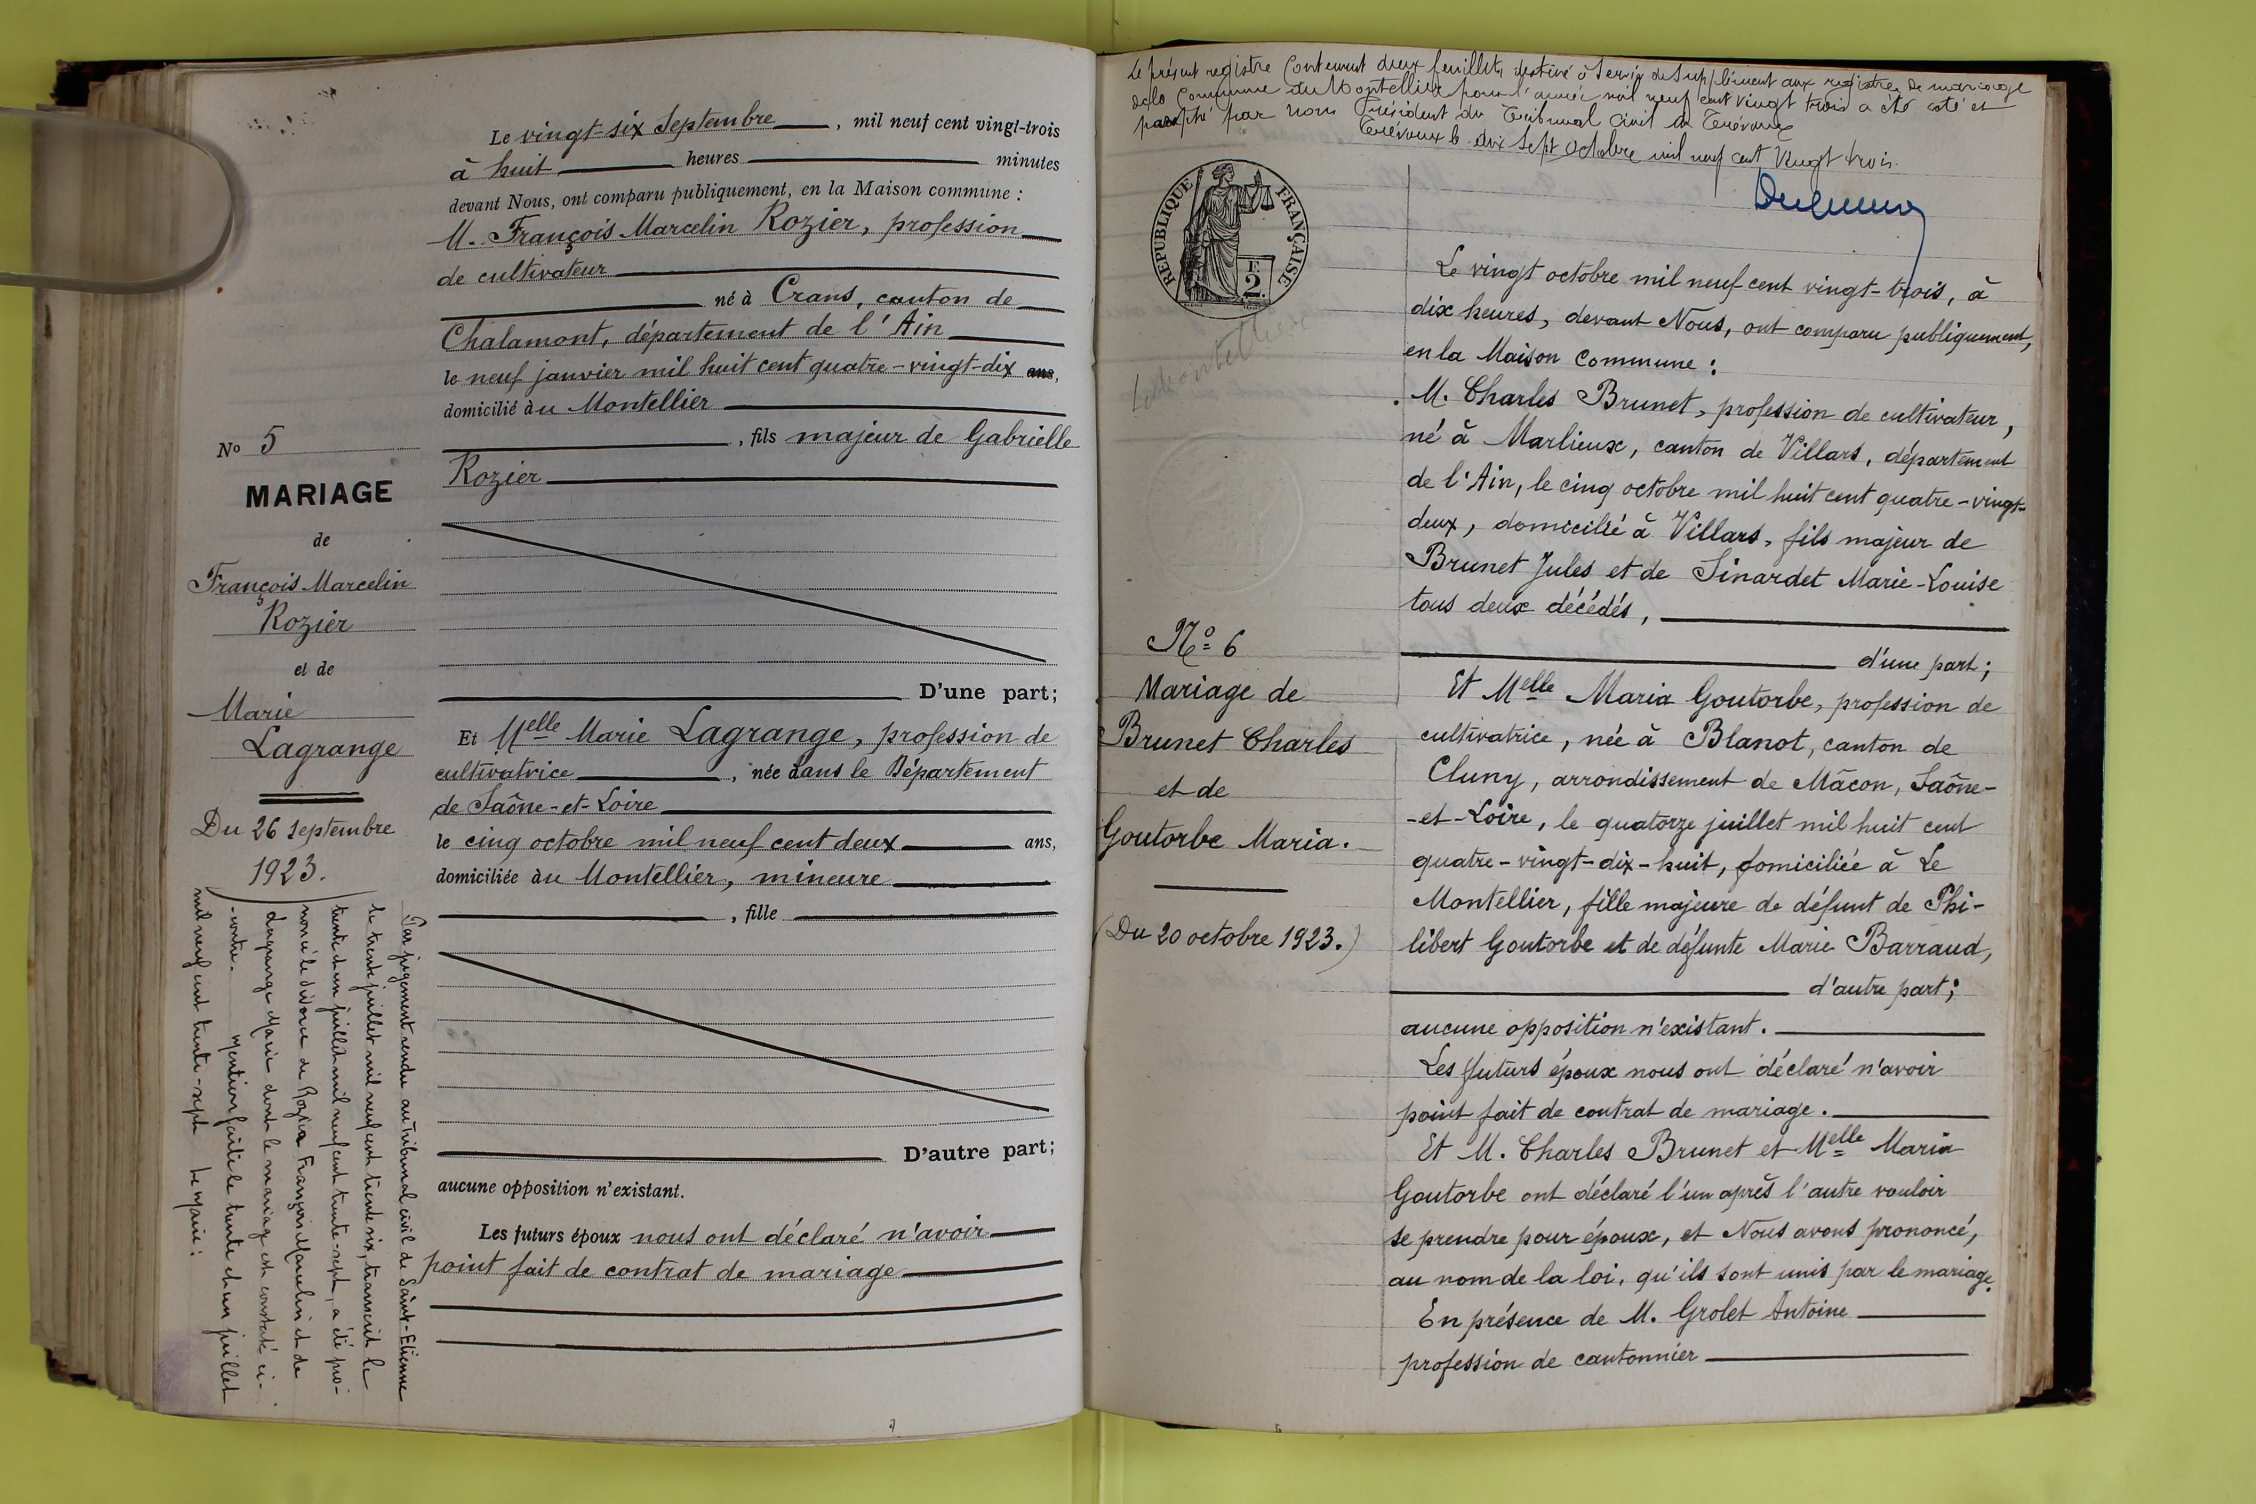 Le vingt-six Septembre, mil neuf cent vingt-trois
à huit heures minutes
devant Nous, ont comparu publiquement, en la Maison commune :
M. François Marcelin Rozier, profession
de cultivateur
né à Crans, canton de
Chalamont, département de l'Ain
le neuf janvier mil huit cent quatre-vingt-dix ans,
domicilié à du Montellier
, fils majeur de Gabrielle
Rozier
No 5
MARIAGE
de
François Marcelin
Rozier
et de
Marie
Lagrange
Du 26 septembre
1923.
D'une part;
Et Melle Marie Lagrange, profession de
cultivatrice, née dans le Département
de Saône-et-Loire
le cinq octobre mil neuf cent deux ans,
domiciliée à du Montellier, mineure
, fille
D'autre part;
aucune opposition n'existant.
Les futurs époux nous ont déclaré n'avoir
point fait de contrat de mariage
Par jugement rendu au tribunal civil de Saint-Etienne
le trente juillet mil neuf cent trente six, transcrit le
trente et un juillet mil neuf cent trente-sept, a été pro-
noncé le divorce de Rozier François Marcelin et de
Lagrange Marie dont le mariage est constaté ci-
-contre. Mention faite le trente et un juillet
mil neuf cent trente-sept Le Maire :
Le présent registre contenant deux feuillets destiné à servir de supplément aux registres de mariage
de la Commune du Montellier pour l'année mil neuf cent vingt trois a été coté et
paraphé par nous Président du Tribunal Civil de Trévoux
Trévoux le dix sept octobre mil neuf cent vingt trois.
RÉPUBLIQUE FRANÇAISE
F.
2.
Le Montellier
Le vingt octobre mil neuf cent vingt-trois, à
dix heures, devant Nous, ont comparu publiquement,
en la Maison Commune :
M. Charles Brunet, profession de cultivateur,
né à Marlieux, canton de Villars, département
de l'Ain, le cinq octobre mil huit cent quatre-vingt-
deux, domicilié à Villars, fils majeur de
Brunet Jules et de Sinardet Marie-Louise
tous deux décédés,
d'une part;
No 6
Mariage de
Brunet Charles
et de
Goutorbe Maria.
(Du 20 octobre 1923.)
Et Melle Maria Goutorbe, profession de
cultivatrice, née à Blanot, canton de
Cluny, arrondissement de Mâcon, Saône-
-et-Loire, le quatorze juillet mil huit cent
quatre-vingt-dix-huit, domiciliée à Le
Montellier, fille majeure de défunt de Phi-
libert Goutorbe et de défunte Marie Barraud,
d'autre part;
aucune opposition n'existant.
Les futurs époux nous ont déclaré n'avoir
point fait de contrat de mariage.
Et M. Charles Brunet et Melle Maria
Goutorbe ont déclaré l'un après l'autre vouloir
se prendre pour époux, et Nous avons prononcé,
au nom de la loi, qu'ils sont unis par le mariage.
En présence de M. Grolet Antoine
profession de cantonnier